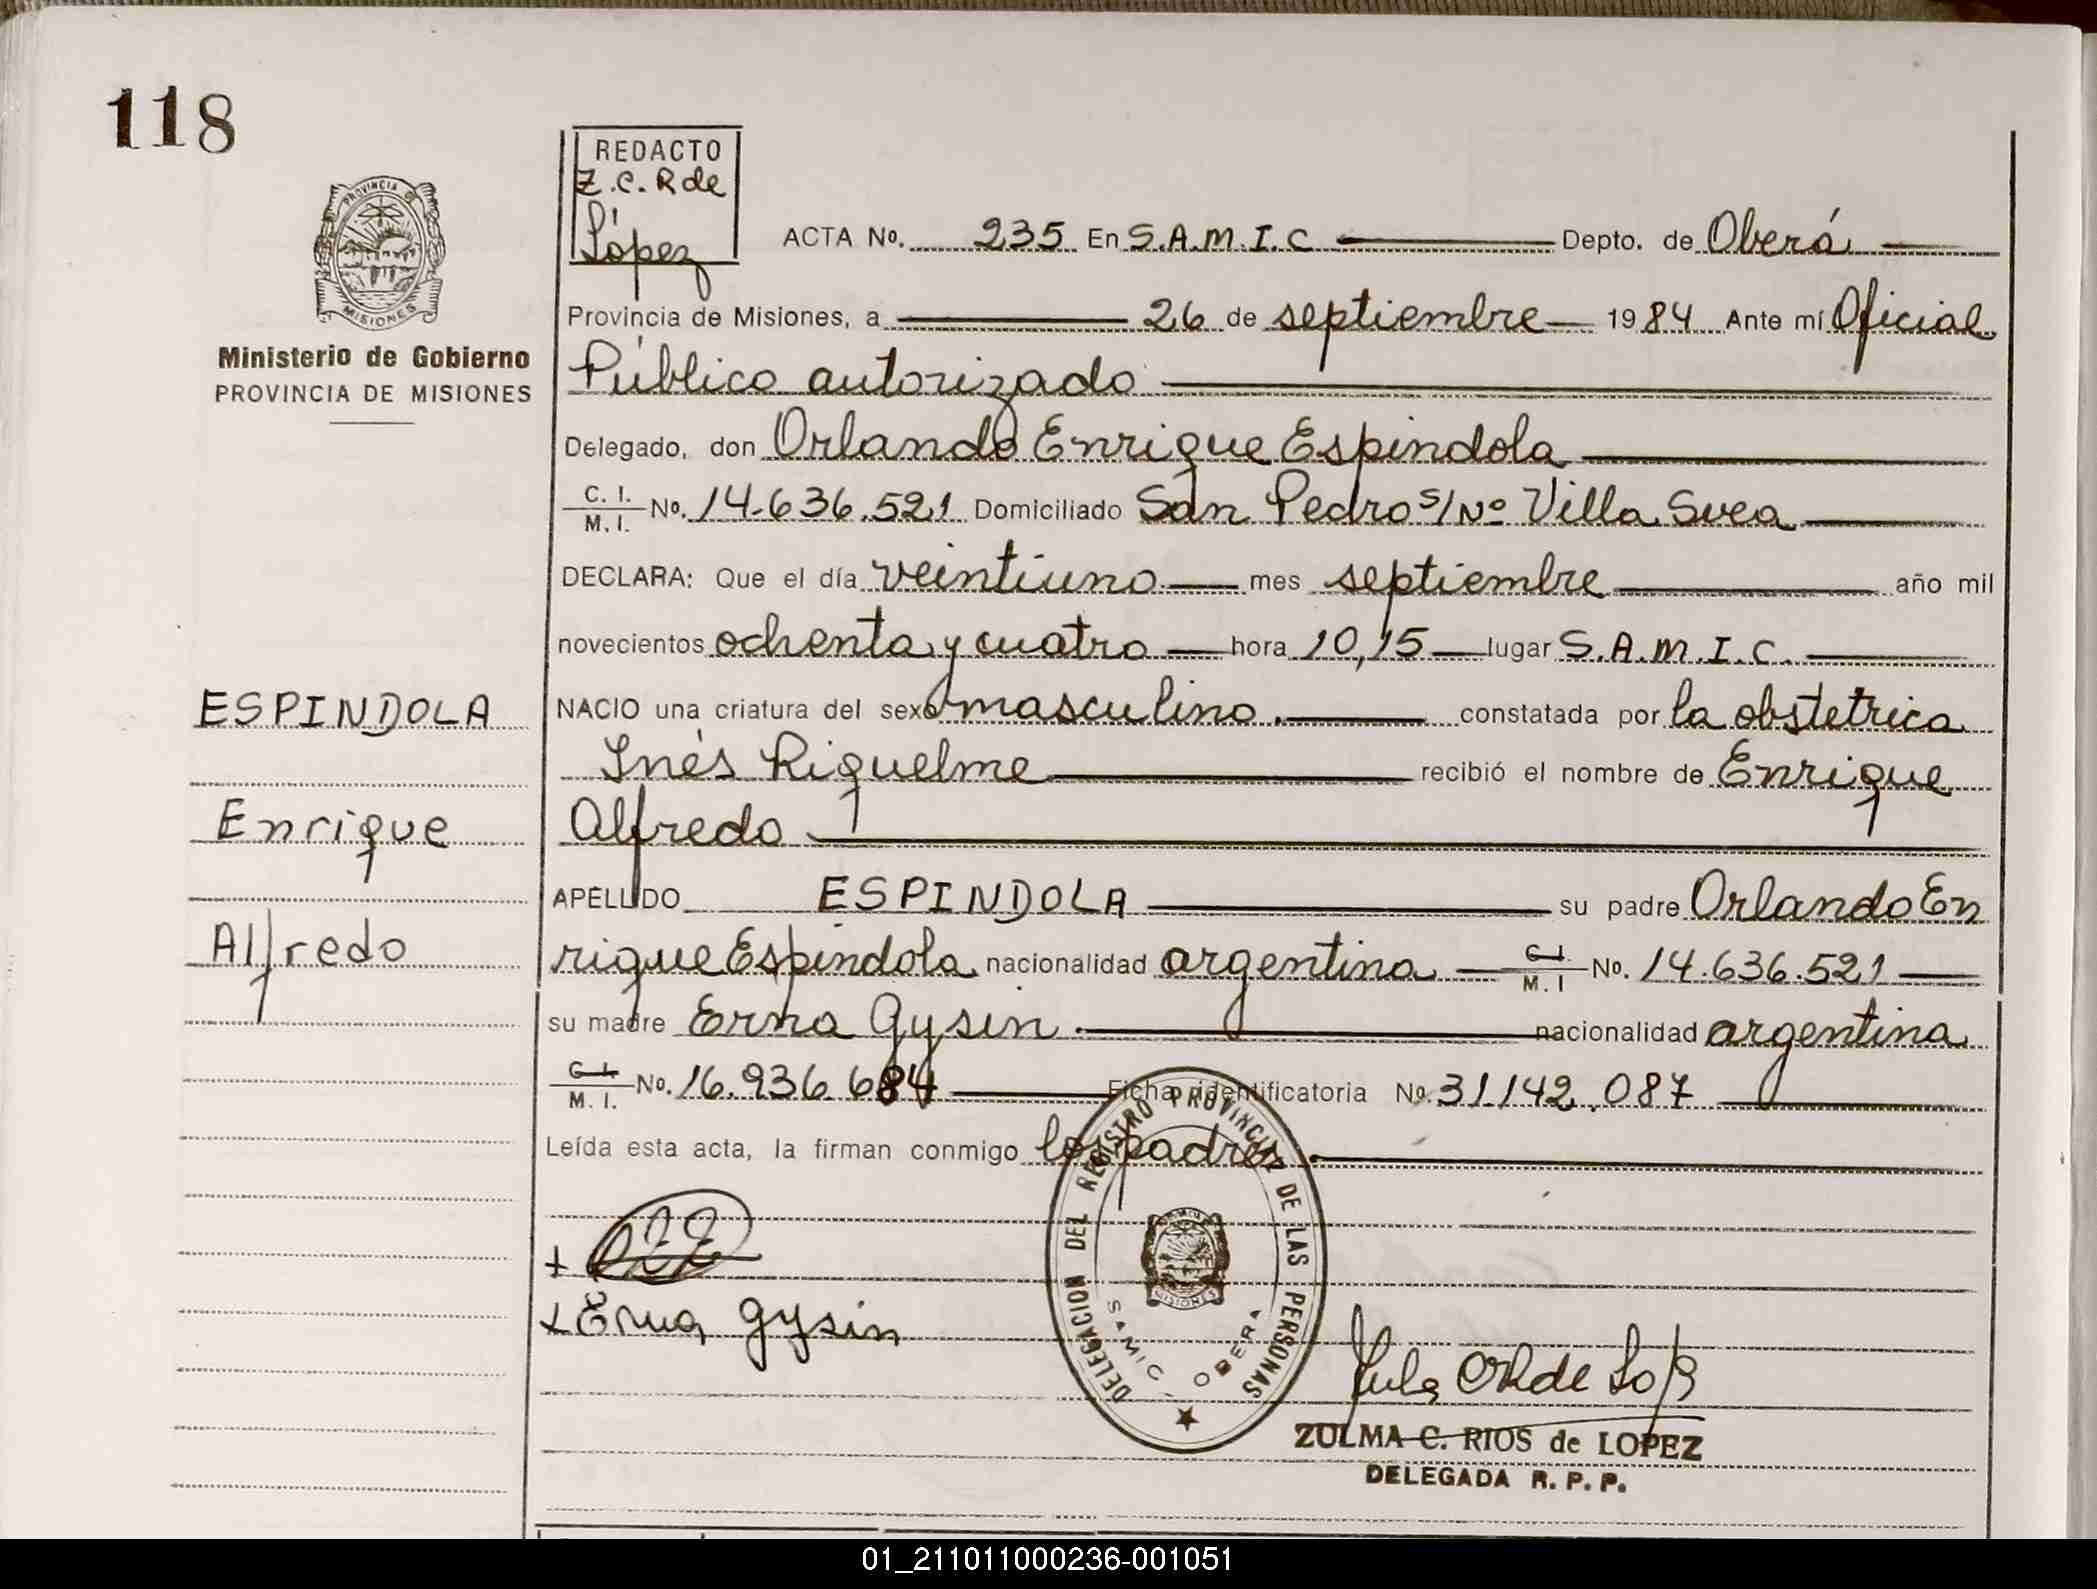 118
REDACTO
Z.C.R de
López
PROVINCIA DE
MISIONES
Ministerio de Gobierno
PROVINCIA DE MISIONES
ACTA No. 235 En S.A.M.I.C Depto. de Oberá
Provincia de Misiones, a 26 de septiembre 1984 Ante mí Oficial
Público autorizado
Delegado, don Orlando Enrique Espindola
C. I. / M. I. No. 14.636.521 Domiciliado San Pedro s/Nº Villa Svea
DECLARA: Que el día veintiuno mes septiembre año mil
novecientos ochenta y cuatro hora 10,15 lugar S.A.M.I.C.
NACIO una criatura del sexo masculino. constatada por la obstetrica
Inés Riquelme recibió el nombre de Enrique
Alfredo
APELLIDO ESPINDOLA su padre Orlando En
rique Espindola nacionalidad argentina C. I. / M. I No. 14.636.521
su madre Erna Gysin. nacionalidad argentina
C. I. / M. I. No. 16.936.684 Ficha identificatoria No. 31.142.087
Leída esta acta, la firman conmigo los padres.
ESPINDOLA
Enrique
Alfredo
+
+ Erna Gysin
DELEGACION DEL REGISTRO PROVINCIAL DE LAS PERSONAS
MISIONES
SAMIC - OBERA
ZULMA C. RIOS de LOPEZ
DELEGADA R. P. P.
01_211011000236-001051